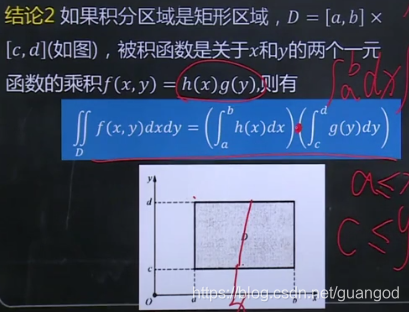 结论2 如果积分区域是矩形区域，D = [a, b] ×
[c, d](如图)，被积函数是关于x和y的两个一元
函数的乘积f(x, y) = h(x)g(y),则有
∬_D f(x, y)dxdy = (∫_a^b h(x)dx) (∫_c^d g(y)dy)
∫_a^b dx
a ≤
c ≤ y
y
d
D
c
O
https://blog.csdn.net/guangod